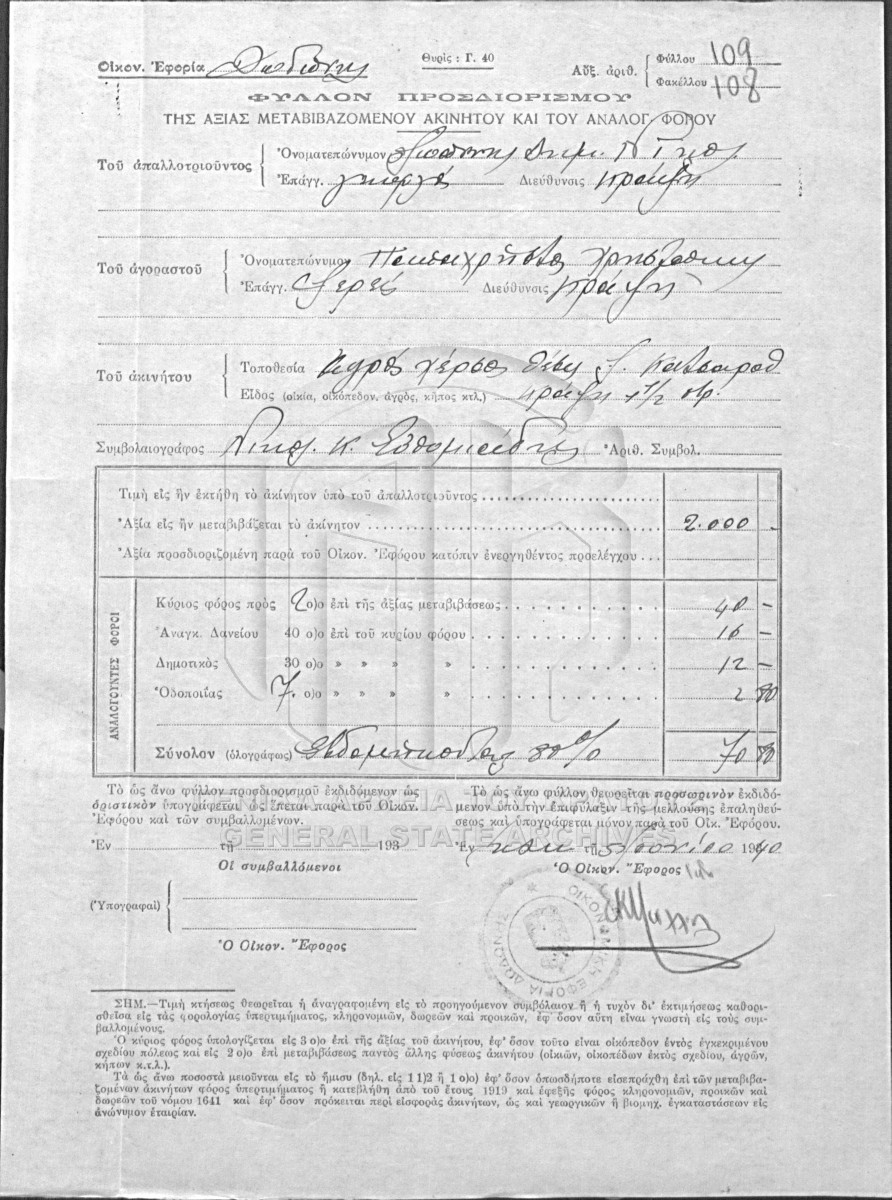 Οἰκον. Ἐφορία Δωδώνης
Θυρίς : Γ. 40
Αὔξ. ἀριθ. Φύλλου 109
Φακέλλου 108
ΦΥΛΛΟΝ ΠΡΟΣΔΙΟΡΙΣΜΟΥ
ΤΗΣ ΑΞΙΑΣ ΜΕΤΑΒΙΒΑΖΟΜΕΝΟΥ ΑΚΙΝΗΤΟΥ ΚΑΙ ΤΟΥ ΑΝΑΛΟΓ. ΦΟΡΟΥ
Τοῦ ἀπαλλοτριοῦντος Ὀνοματεπώνυμον Δημ.
Ἐπάγγ. γεωργός Διεύθυνσις
Τοῦ ἀγοραστοῦ Ὀνοματεπώνυμον Παπαχρήστος
Ἐπάγγ. ἱερεύς Διεύθυνσις
Τοῦ ἀκινήτου Τοποθεσία Ἀγρός χέρσος θέσις
Εἶδος (οἰκία, οἰκόπεδον, ἀγρός, κῆπος κτλ.) 1/2 στρ.
Συμβολαιογράφος Νικόλ. Κ. Ἀριθ. Συμβολ.
Τιμὴ εἰς ἣν ἐκτήθη τὸ ἀκίνητον ὑπὸ τοῦ ἀπαλλοτριοῦντος
Ἀξία εἰς ἣν μεταβιβάζεται τὸ ἀκίνητον 2.000 -
Ἀξία προσδιοριζομένη παρὰ τοῦ Οἰκον. Ἐφόρου κατόπιν ἐνεργηθέντος προελέγχου
ΑΝΑΛΟΓΟΥΝΤΕΣ ΦΟΡΟΙ
Κύριος φόρος πρὸς 2 ο)ο ἐπὶ τῆς ἀξίας μεταβιβάσεως 40 -
Ἀναγκ. Δανείου 40 ο)ο ἐπὶ τοῦ κυρίου φόρου 16 -
Δημοτικὸς 30 ο)ο » » » 12 -
Ὁδοποιΐας 7 ο)ο » » » 2 80
Σύνολον (ὁλογράφως) Ἑβδομήκοντα 80% 70 80
Τὸ ὡς ἄνω φύλλον προσδιορισμοῦ ἐκδιδόμενον ὡς
ὁριστικὸν ὑπογράφεται ὡς ἕπεται παρὰ τοῦ Οἰκον.
Ἐφόρου καὶ τῶν συμβαλλομένων.
Ἐν τῇ 193
Οἱ συμβαλλόμενοι
(Ὑπογραφαὶ)
Ὁ Οἰκον. Ἔφορος
-Τὸ ὡς ἄνω φύλλον θεωρεῖται προσωρινὸν ἐκδιδό-
μενον ὑπὸ τὴν ἐπιφύλαξιν τῆς μελλούσης ἐπαληθεύ-
σεως καὶ ὑπογράφεται μόνον παρὰ τοῦ Οἰκ. Ἐφόρου.
Ἐν τῇ 5 1940
Ὁ Οἰκον. Ἔφορος
ΟΙΚΟΝΟΜΙΚΗ ΕΦΟΡΙΑ ΔΩΔΩΝΗΣ
GENERAL STATE ARCHIVES
ΣΗΜ.—Τιμὴ κτήσεως θεωρεῖται ἡ ἀναγραφομένη εἰς τὸ προηγούμενον συμβόλαιον ἢ ἡ τυχὸν δι' ἐκτιμήσεως καθορι-
σθεῖσα εἰς τὰς φορολογίας ὑπερτιμήματος, κληρονομιῶν, δωρεῶν καὶ προικῶν, ἐφ' ὅσον αὕτη εἶναι γνωστὴ εἰς τοὺς συμ-
βαλλομένους.
Ὁ κύριος φόρος ὑπολογίζεται εἰς 3 ο)ο ἐπὶ τῆς ἀξίας τοῦ ἀκινήτου, ἐφ' ὅσον τοῦτο εἶναι οἰκόπεδον ἐντὸς ἐγκεκριμένου
σχεδίου πόλεως καὶ εἰς 2 ο)ο ἐπὶ μεταβιβάσεως παντὸς ἄλλης φύσεως ἀκινήτου (οἰκιῶν, οἰκοπέδων ἐκτὸς σχεδίου, ἀγρῶν,
κήπων κ.τ.λ.).
Τὰ ὡς ἄνω ποσοστὰ μειοῦνται εἰς τὸ ἥμισυ (δηλ. εἰς 1 1)2 ἢ 1 ο)ο) ἐφ' ὅσον ὁπωσδήποτε εἰσεπράχθη ἐπὶ τῶν μεταβιβα-
ζομένων ἀκινήτων φόρος ὑπερτιμήματος ἢ κατεβλήθη ἀπὸ τοῦ ἔτους 1919 καὶ ἐφεξῆς φόρος κληρονομιῶν, προικῶν καὶ
δωρεῶν τοῦ νόμου 1641 καὶ ἐφ' ὅσον πρόκειται περὶ εἰσφορᾶς ἀκινήτων, ὡς καὶ γεωργικῶν ἢ βιομηχ. ἐγκαταστάσεων εἰς
ἀνώνυμον ἑταιρίαν.